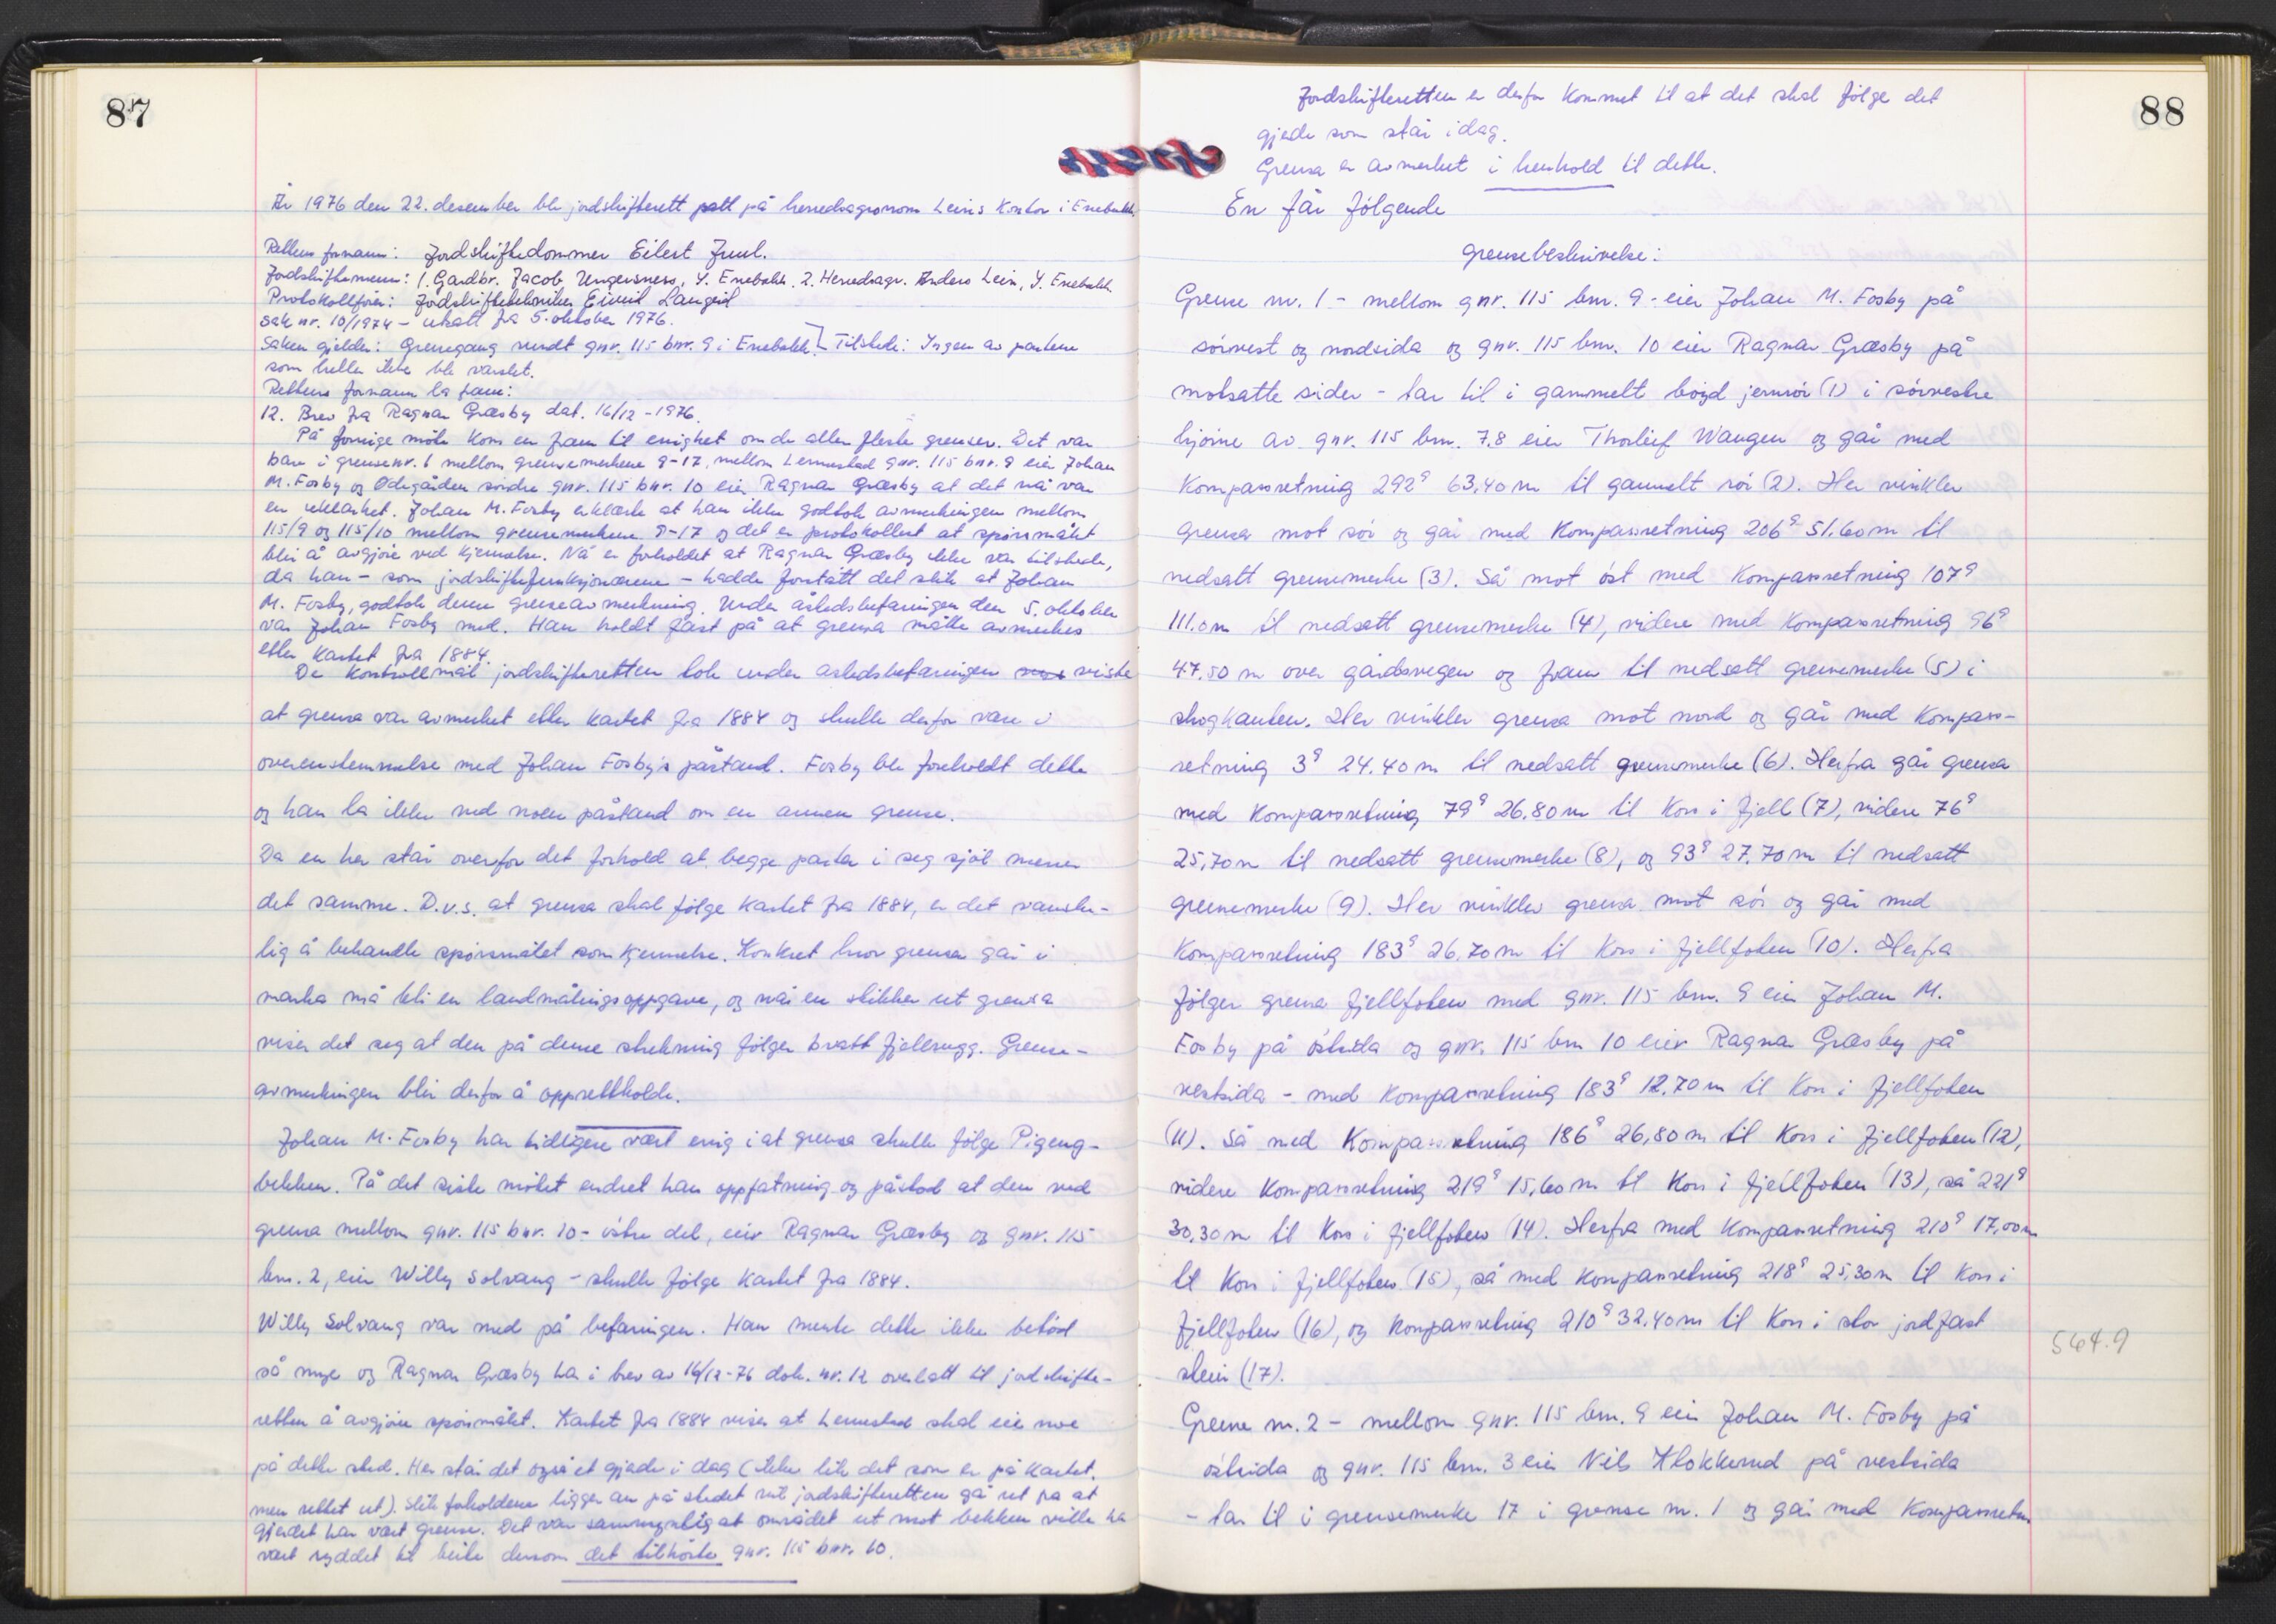 87
År 1976 den 22. desember ble jordskifterett satt på herredsagronom Leins kontor i Enebakk.
Rettens formann: Jordskiftedommer Eilert Juul.
Jordskiftemenn: 1. Gardbr. Jacob Ungersness, Y. Enebakk. 2. Herredsagr. Anders Lein, Y. Enebakk.
Protokollfører: Jordskiftetekniker Eivind Langeid
Sak nr. 10/1974 - utsatt fra 5. oktober 1976.
Saken gjelder: Grensegang rundt gnr. 115 bnr. 9 i Enebakk. Tilstede: Ingen av partene
som heller ikke ble varslet.
Rettens formann la fram:
12. Brev fra Ragnar Græsby dat. 16/12-1976.
På forrige møte kom en fram til enighet om de aller fleste grenser. Det var
bare i grense nr. 1 mellom grensemerkene 9-17, mellom Lennestad gnr. 115 bnr. 9 eier Johan
M. Fosby og Ødegården søndre gnr. 115 bnr. 10 eier Ragnar Græsby at det nå var
en uklarhet. Johan M. Fosby erklærte at han ikke godtok avmerkingen mellom
115/9 og 115/10 mellom grensemerkene 9-17 og det er protokollert at spørsmålet
blir å avgjøre ved kjennelse. Nå er forholdet at Ragnar Græsby ikke var tilstede,
da han - som jordskiftefunksjonærene - hadde forstått det slik at Johan
M. Fosby, godtok denne grenseavmerkning. Under åstedsbefaringen den 5. oktober
var Johan Fosby med. Han holdt fast på at grensa måtte avmerkes
etter kartet fra 1884.
De kontrollmål jordskifteretten tok under åstedsbefaringen viste
at grensa var avmerket etter kartet fra 1884 og skulle derfor være i
overenstemmelse med Johan Fosby's påstand. Fosby ble forelvedt dette
og han la ikke ned noen påstand om en annen grense.
Da en her står overfor det forhold at begge parter i seg sjøl mener
det samme. D.v.s. at grensa skal følge kartet fra 1884, er det vanske-
lig å behandle spørsmålet som kjennelse. Konkret hvor grensa går i
marka må bli en landmålingsoppgave, og når en stikker ut grensa
viser det seg at den på denne strekning følger bratt fjellrugg. Grense-
avmerkingen blir derfor å opprettholde.
Johan M. Fosby har tidligere vært enig i at grensa skulle følge Pigeng-
bekken. På det siste møtet endret han oppfatning og påstod at den ved
grensa mellom gnr. 115 bnr. 10 - østre del, eier Ragnar Græsby og gnr. 115
bnr. 2, eier Willy Solvang - skulle følge kartet fra 1884.
Willy Solvang var med på befaringen. Han mente dette ikke betød
så mye og Ragnar Græsby ha i brev av 16/12-76 dok. nr. 12 overlatt til jordskifte-
retten å avgjøre spørsmålet. Kartet fra 1884 viser at Lennestad skal eie noe
på dette sted. Her står det også et gjerde i dag (ikke lik det som er på kartet,
men rettet ut). Slik forholdene ligger an på stedet må jordskifteretten gå ut fra at
gjerdet har vært grense. Det var sannsynlig at området ut mot bekken ville ha
vært ryddet til beite dersom det tilhørte gnr. 115 bnr. 10.
88
Jordskifteretten er derfor kommet til at det skal følge det
gjerde som står idag.
Grensa er avmerket i henhold til dette.
En får følgende
grensebeskrivelse:
Grense nr. 1 - mellom gnr. 115 bnr. 9 - eier Johan M. Fosby på
sørvest og nordsida og gnr. 115 bnr. 10 eier Ragnar Græsby på
motsatte sider - tar til i gammelt bøyd jernrør (1) i sørvestre
hjørne av gnr. 115 bnr. 7,8 eier Thorleif Wangen og går med
kompassretning 292g 63,40 m til gammelt rør (2). Her vinkler
grensa mot sør og går med kompassretning 206g 51.60 m til
nedsatt grensemerke (3). Så mot øst med kompassretning 107g
111.0 m til nedsatt grensemerke (4), videre med kompassretning 96g
47.50 m over gårdsvegen og fram til nedsatt grensemerke (5) i
skogkanten. Her vinkler grensa mot nord og går med kompass-
retning 3g 24.40 m til nedsatt grensemerke (6). Herfra går grensa
med kompassretning 79g 26.80 m til kors i fjell (7), videre 76g
25,70 m til nedsatt grensemerke (8), og 93g 27,70 m til nedsatt
grensemerke (9). Her vinkler grensa mot sør og går med
kompassretning 183g 26,70 m til kors i fjellfoten (10). Herfra
følger grensa fjellfoten med gnr. 115 bnr. 9 eier Johan M.
Fosby på østsida og gnr. 115 bnr 10 eier Ragnar Græsby på
vestsida - med kompassretning 183g 12.70 m til kors i fjellfoten
(11). Så med kompassretning 186g 26,80 m til kors i fjellfoten (12),
videre kompassretning 219g 15,60 m til kors i fjellfoten (13), så 221g
30,30 m til kors i fjellfoten (14). Herfra med kompassretning 210g 17,00 m
til kors i fjellfoten (15), så med kompassretning 218g 25,30 m til kors i
fjellfoten (16), og kompassretning 210g 32.40 m til kors i stor jordfast
stein (17).
564.9
Grense nr. 2 - mellom gnr. 115 bnr. 9 eier Johan M. Fosby på
østsida og gnr. 115 bnr. 3 eier Nils Klokkerud på vestsida
- tar til i grensemerke 17 i grense nr. 1 og går med kompassretn